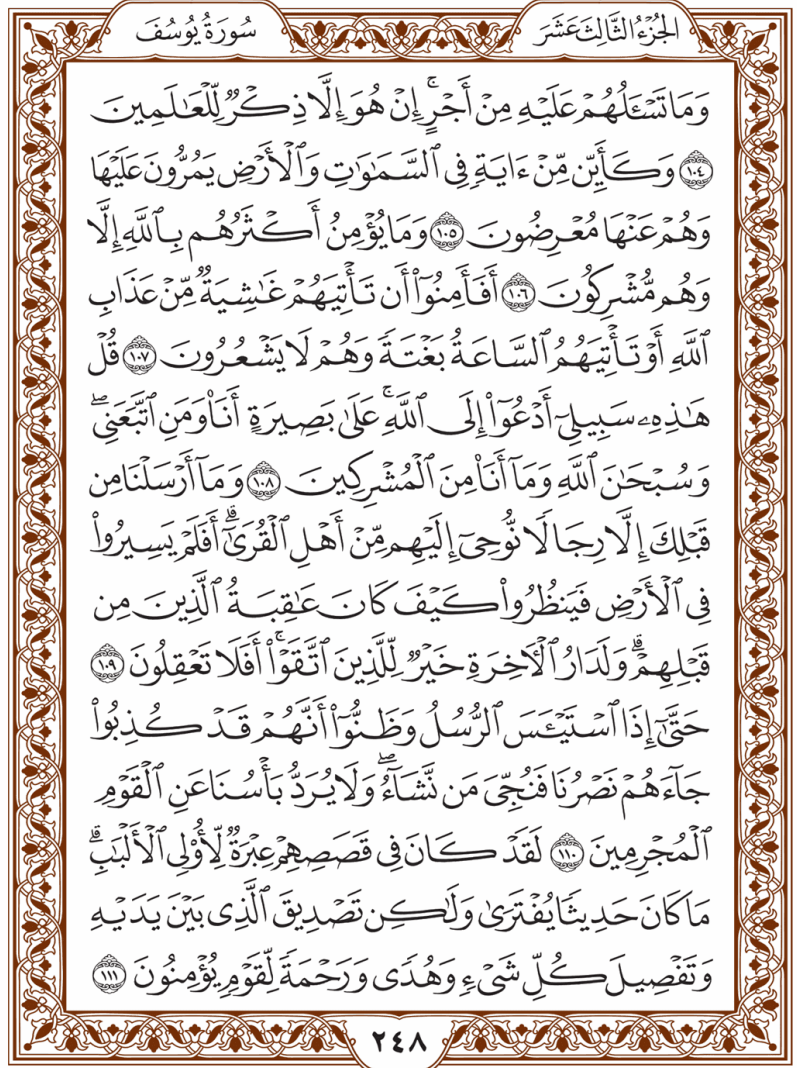 الجُزْءُ الثَّالِثَ عَشَرَ
سُورَةُ يُوسُفَ
وَمَا تَسْـَٔلُهُمْ عَلَيْهِ مِنْ أَجْرٍۚ إِنْ هُوَ إِلَّا ذِكْرٌ لِّلْعَٰلَمِينَ
١٠٤ وَكَأَيِّن مِّنْ ءَايَةٍ فِى ٱلسَّمَٰوَٰتِ وَٱلْأَرْضِ يَمُرُّونَ عَلَيْهَا
وَهُمْ عَنْهَا مُعْرِضُونَ ١٠٥ وَمَا يُؤْمِنُ أَكْثَرُهُم بِٱللَّهِ إِلَّا
وَهُم مُّشْرِكُونَ ١٠٦ أَفَأَمِنُوٓا۟ أَن تَأْتِيَهُمْ غَٰشِيَةٌ مِّنْ عَذَابِ
ٱللَّهِ أَوْ تَأْتِيَهُمُ ٱلسَّاعَةُ بَغْتَةً وَهُمْ لَا يَشْعُرُونَ ١٠٧ قُلْ
هَٰذِهِۦ سَبِيلِىٓ أَدْعُوٓا۟ إِلَى ٱللَّهِۚ عَلَىٰ بَصِيرَةٍ أَنَا۠ وَمَنِ ٱتَّبَعَنِىۖ
وَسُبْحَٰنَ ٱللَّهِ وَمَآ أَنَا۠ مِنَ ٱلْمُشْرِكِينَ ١٠٨ وَمَآ أَرْسَلْنَا مِن
قَبْلِكَ إِلَّا رِجَالًا نُّوحِىٓ إِلَيْهِم مِّنْ أَهْلِ ٱلْقُرَىٰٓۗ أَفَلَمْ يَسِيرُوا۟
فِى ٱلْأَرْضِ فَيَنظُرُوا۟ كَيْفَ كَانَ عَٰقِبَةُ ٱلَّذِينَ مِن
قَبْلِهِمْۗ وَلَدَارُ ٱلْءَاخِرَةِ خَيْرٌ لِّلَّذِينَ ٱتَّقَوْا۟ۚ أَفَلَا تَعْقِلُونَ ١٠٩
حَتَّىٰٓ إِذَا ٱسْتَيْـَٔسَ ٱلرُّسُلُ وَظَنُّوٓا۟ أَنَّهُمْ قَدْ كُذِبُوا۟
جَآءَهُمْ نَصْرُنَا فَنُجِّىَ مَن نَّشَآءُۖ وَلَا يُرَدُّ بَأْسُنَا عَنِ ٱلْقَوْمِ
ٱلْمُجْرِمِينَ ١١٠ لَقَدْ كَانَ فِى قَصَصِهِمْ عِبْرَةٌ لِّأُو۟لِى ٱلْأَلْبَٰبِۗ
مَا كَانَ حَدِيثًا يُفْتَرَىٰ وَلَٰكِن تَصْدِيقَ ٱلَّذِى بَيْنَ يَدَيْهِ
وَتَفْصِيلَ كُلِّ شَىْءٍ وَهُدًى وَرَحْمَةً لِّقَوْمٍ يُؤْمِنُونَ ١١١
٢٤٨